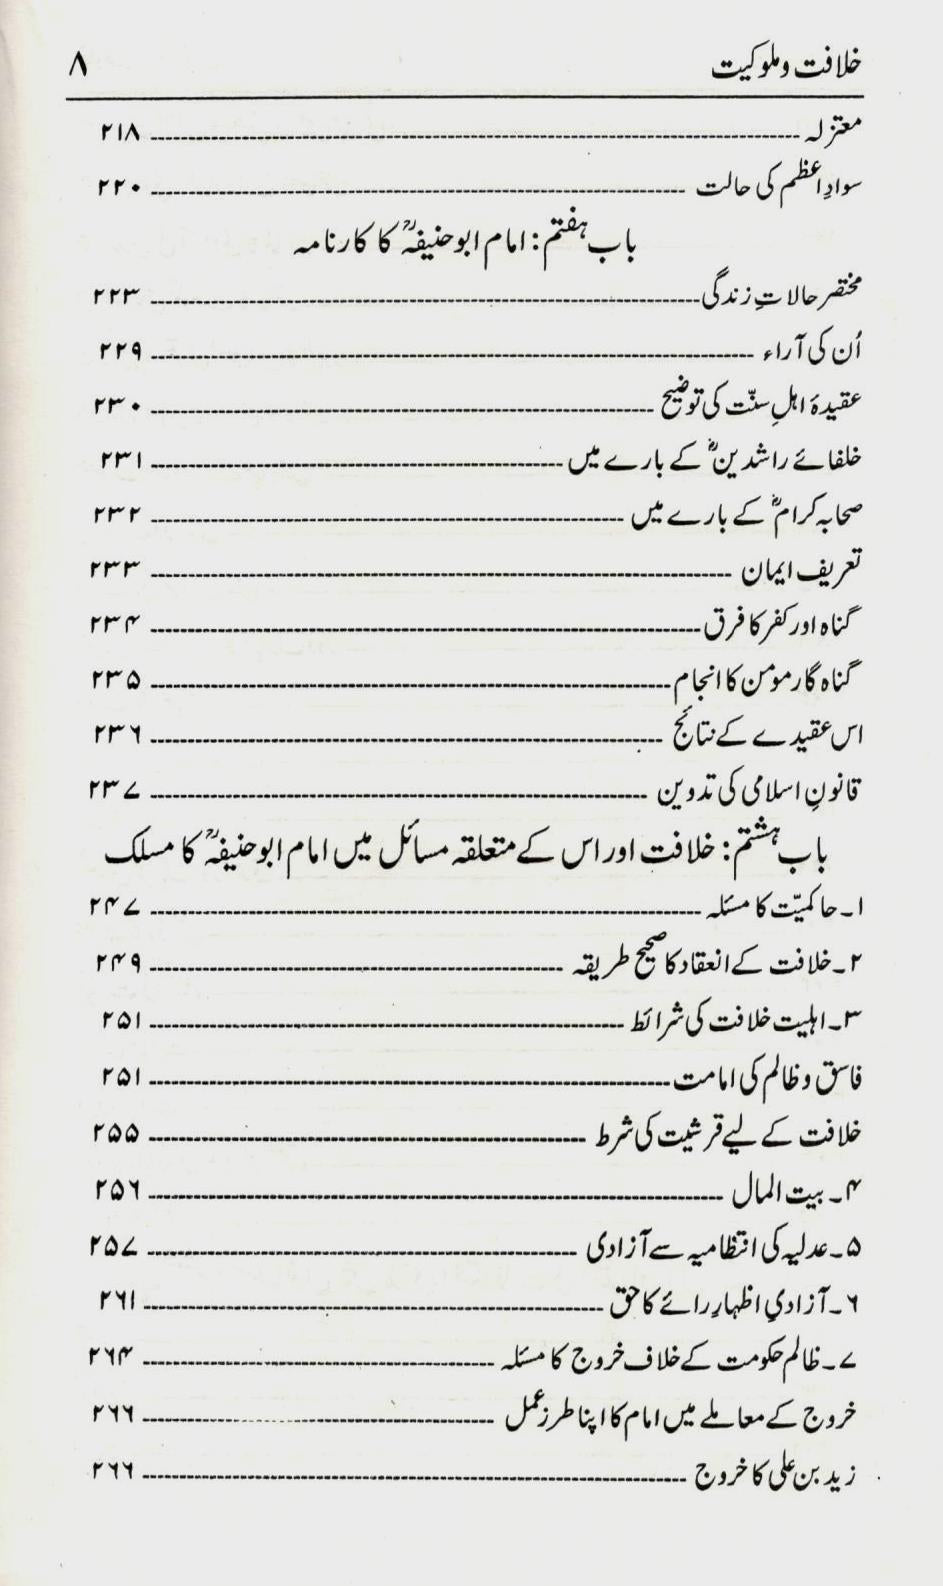 خلافت و ملوکیت ۸
معتزلہ ۲۱۸
سوادِ اعظم کی حالت ۲۲۰
باب ہفتم: امام ابو حنیفہؒ کا کارنامہ
مختصر حالاتِ زندگی ۲۲۳
اُن کی آراء ۲۲۹
عقیدۂ اہلِ سنّت کی توضیح ۲۳۰
خلفائے راشدینؓ کے بارے میں ۲۳۱
صحابہ کرامؓ کے بارے میں ۲۳۲
تعریف ایمان ۲۳۳
گناہ اور کفر کا فرق ۲۳۴
گناہ گار مومن کا انجام ۲۳۵
اس عقیدے کے نتائج ۲۳۶
قانونِ اسلامی کی تدوین ۲۳۷
باب ہشتم: خلافت اور اس کے متعلقہ مسائل میں امام ابو حنیفہؒ کا مسلک
۱۔ حاکمیّت کا مسئلہ ۲۴۷
۲۔ خلافت کے انعقاد کا صحیح طریقہ ۲۴۹
۳۔ اہلیت خلافت کی شرائط ۲۵۱
فاسق و ظالم کی امامت ۲۵۱
خلافت کے لیے قرشیت کی شرط ۲۵۵
۴۔ بیت المال ۲۵۶
۵۔ عدلیہ کی انتظامیہ سے آزادی ۲۵۷
۶۔ آزادیِ اظہارِ رائے کا حق ۲۶۱
۷۔ ظالم حکومت کے خلاف خروج کا مسئلہ ۲۶۴
خروج کے معاملے میں امام کا اپنا طرزِ عمل ۲۶۶
زید بن علی کا خروج ۲۶۶